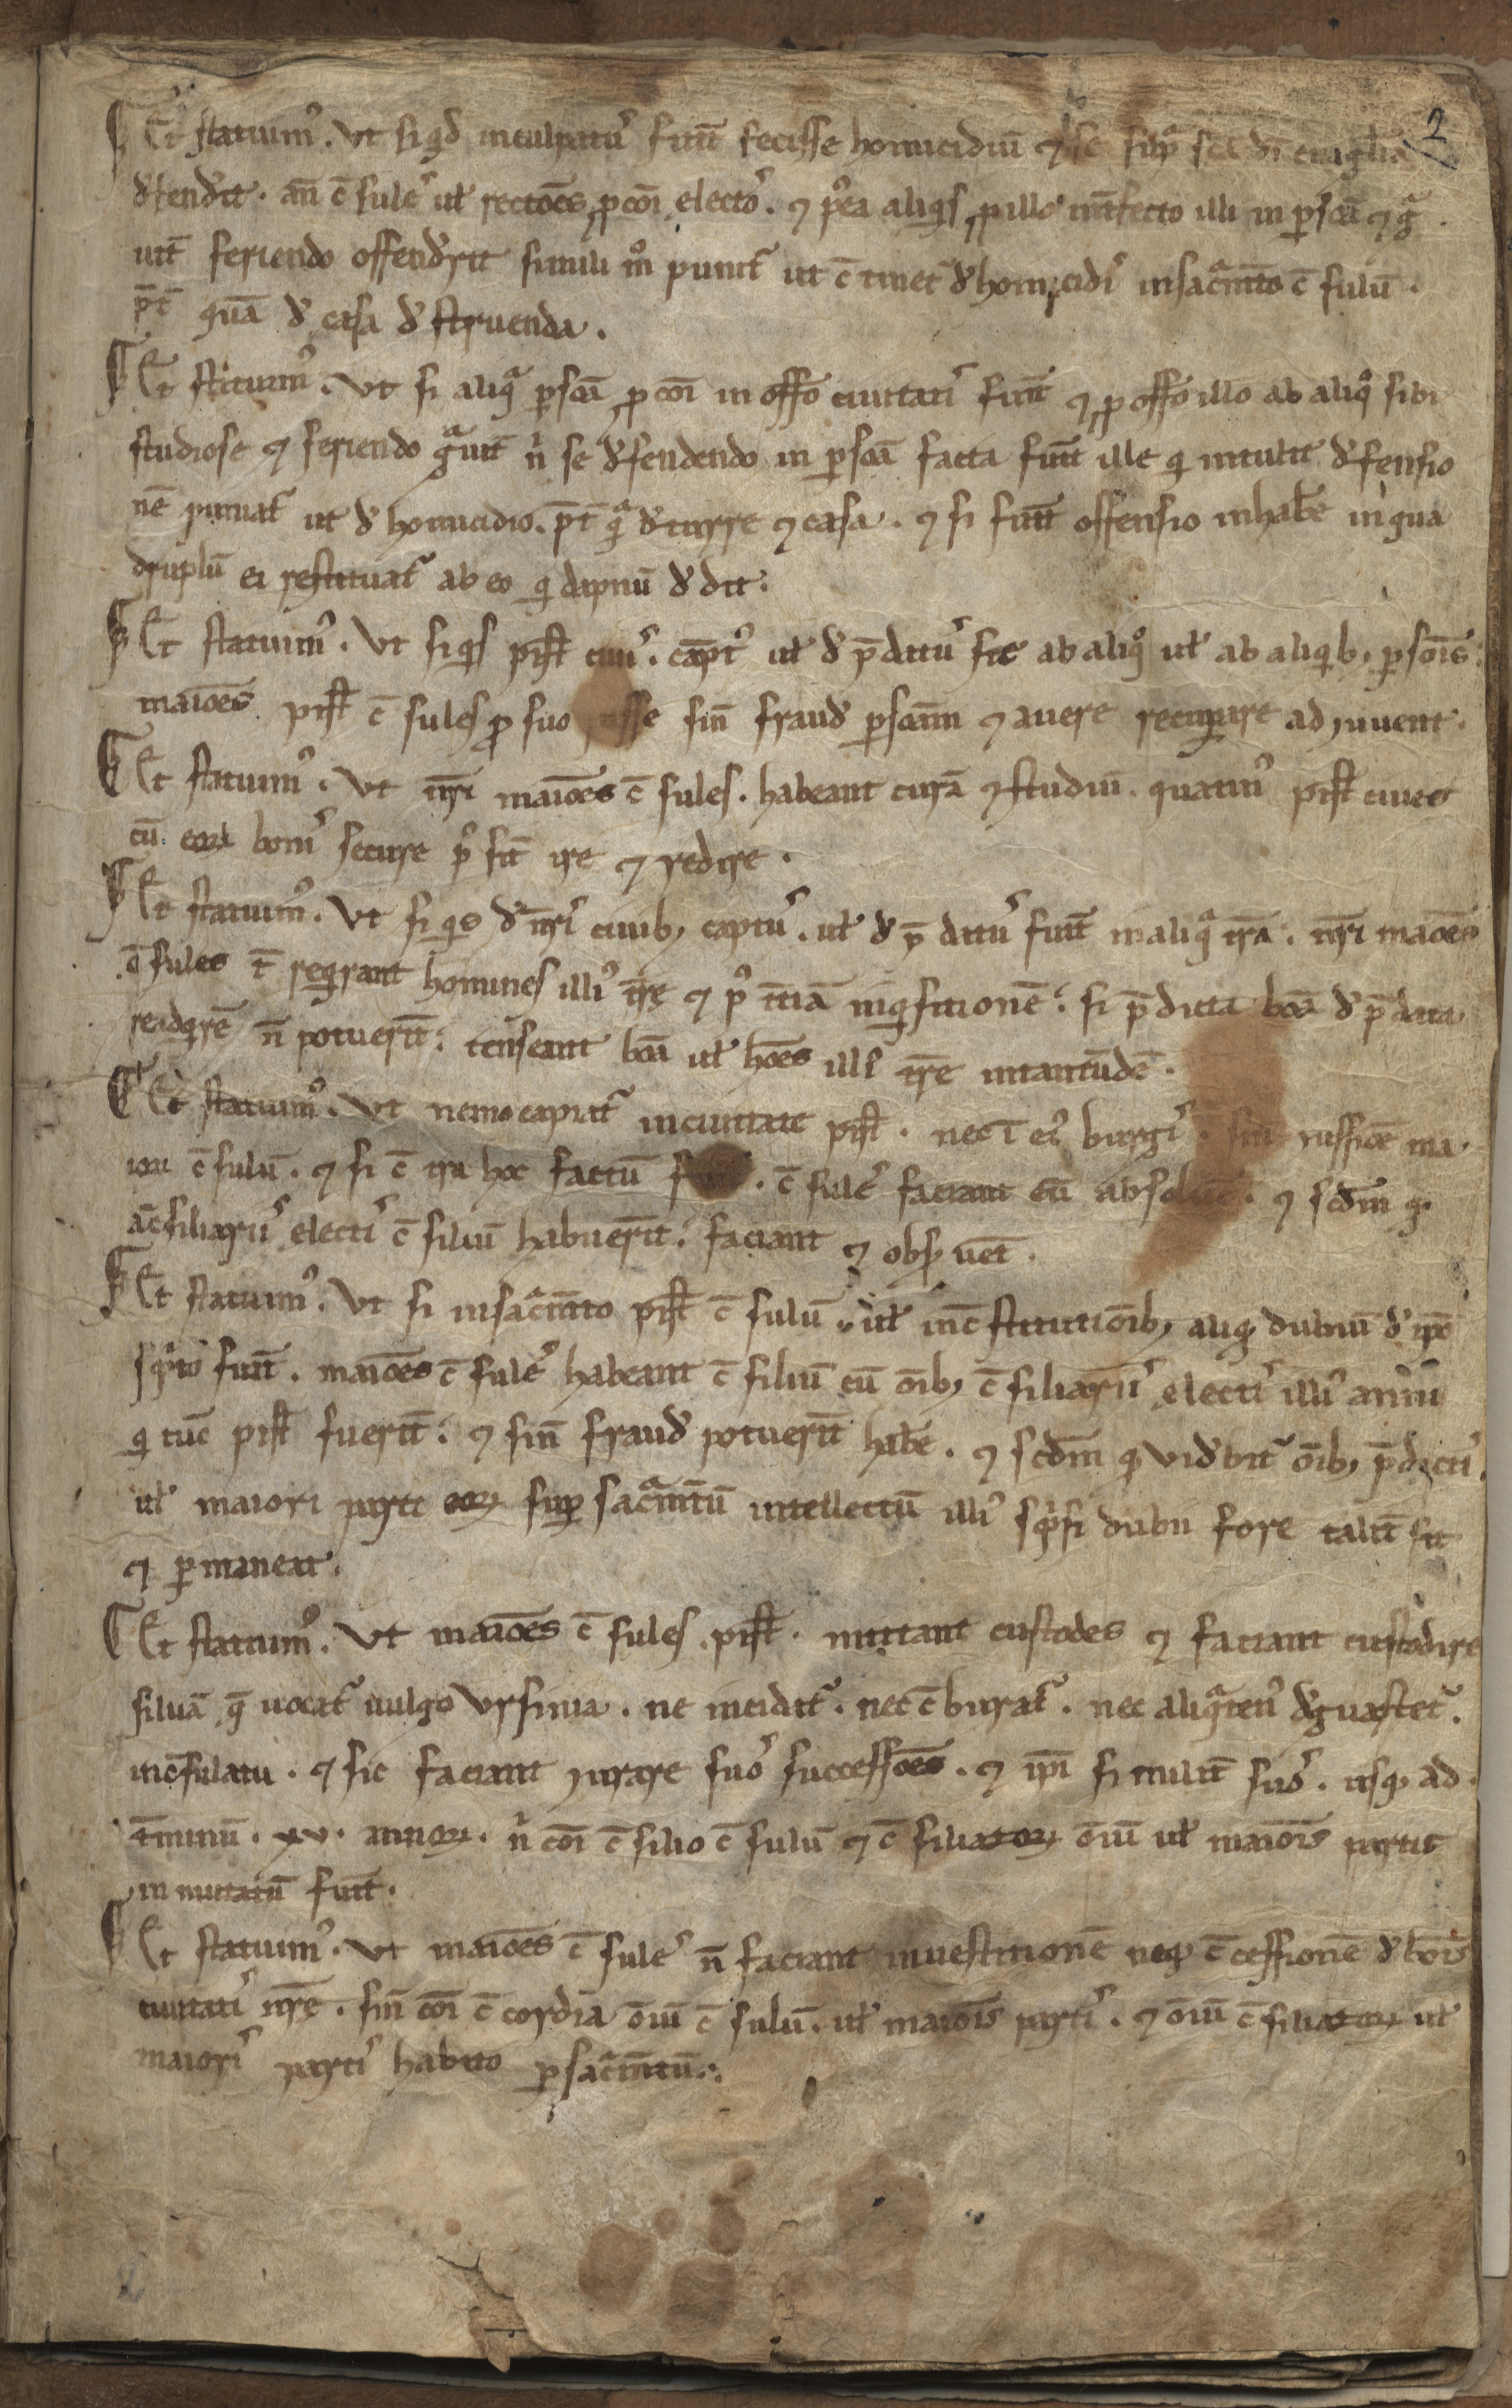 2
Et statuim᷒. Vt si qd̄ inculpatu᷒ fu͛it fecisse homicidiū ⁊ se sup͛ sc̄a dī euāgl̄ia
d̵fend͛it. an̄ c̄sule᷒ ul̵ rectōes ꝑ cōi electo᷒. ⁊ p᷒ea aliq̇s ꝑ illo m̄fecto illi in ꝑsōa ⁊ gͣ
uit̄ feriendo offend̵erit simili mº puniat᷑ ut c̄tinet᷑ d̵ homicidi᷒ in sacͣm̄to c̄sulū.
p̄t quā d̵ casa d̵struenda.
Et statuim᷒. Vt si aliqͣ ꝑsōa ꝓ cōi in offō ciuitati᷒ fu͛it ⁊ ꝓ offō illo ab aliqº sibi
studiose ⁊ feriendo gͣuit̄ nͥ se d̵fendendo in ꝑsōa facta fu͛it ille q̇ intulit d̵fensio
nē puniat᷑ ut d̵ homicidio. p̄t qͣ d̵ turre ⁊ casa. ⁊ si fu͛it offensio in habe͛ in qua
druplū ei restituat᷑ ab eo q̇ dapnū d̵dit.
Et statuim᷒. Vt si q̇s pist̵ ciui᷒. capt᷒ ul̵ d̵p̄datu᷒ sit ab aliqº ul̵ ab aliq̇b; ꝑsōis
maiōes pist̵ c̄sules ꝓ suo posse sin̄ fraud̵ ꝑsonam ⁊ auere recuꝑare adiuuent.
Et statuim᷒. Vt nr̄i maiōes c̄sules. habeant curā ⁊ studiū. quatin᷒ pist̵ ciues
cū eoꝝ boni᷒ secure p᷒sit̄ ire ⁊ redire.
Et statuim᷒. Vt si q̇s d̵ nr̄i᷒ ciuib; captu᷒. ul̵ d̵p̄datu᷒ fu͛it in aliqͣ tr̄a. nr̄i maiōes
c̄sules t̄ reqͥrant homines illi᷒ tr̄e ⁊ p᷒ t̄ciā inq̇sitionē. si p̄dicta bōa d̵p̄data
readq̇rē n̄ potuerit̄. tenseant bōa ul̵ hōes illi᷒ tr̄e in tantūdē.
Et statuim᷒. Vt nemo capiat᷑ in ciuitate pist̵. nec ī ei᷒ burgi᷒. sin̄ iussiōe ma
iorū c̄sulū. ⁊ si c̄tra hoc factū fu͛it. c̄sule᷒ faciant eū absolue͛. ⁊ scd̄m q̄
a c̄siliarii᷒ electi᷒ c̄siliū habuerit̄. faciant ⁊ obs͛uēt.
Et statuim᷒. Vt si in sacͣm̄to pist̵ c̄sulū. ul̵ in c̄stitutiōib; aliq̄ dubiū d̵ ip̄o
sc͛pto fu͛it. maiōes c̄sule᷒ habeant c̄siliū cū ōib; c̄siliarii᷒ electi᷒ illi᷒ anni
q̇ tūc pist̵ fuerit̄. ⁊ sin̄ fraud̵ potuerit̄ habe͛. ⁊ scd̄m q̄ uid̵bit᷑ ōib; p̄dicti᷒
ul̵ maiori parti eoꝝ suꝑ sacͣm̄tū intellectū illi᷒ sc͛pti dubii fore talit͛ sit
⁊ ꝑmaneat.
Et statuim᷒. Vt maiōes c̄sules pist̵. mittant custodes ⁊ faciant custodire
siluā q̄ uocat᷑ uulgo Vrsinia. ne incidat᷑. nec c̄burat᷑. nec aliqͣten᷒ d̵guastet᷑.
in c̄sulatu. ⁊ sic faciant iurare suo᷒ successōes. ⁊ ip̄i similit͛ suo᷒. usq; ad
t͛minū. xv. annoꝝ. nͥ cōi c̄silio c̄sulū ⁊ c̄siliatoꝝ ōiū ul̵ maiōis partis
inmutatū fu͛it.
Et statuim᷒. Vt maiōes c̄sule᷒ n̄ faciant inuestitionē neq; c̄cessionē d̵ bōis
ciuitati᷒ nr̄e. sin̄ cōi c̄cordia ōiū c̄sulū. ul̵ maiōis parti᷒. ⁊ ōiū c̄siliatoꝝ ul̵
maiori᷒ parti᷒ habito ꝑ sacͣm̄tū.